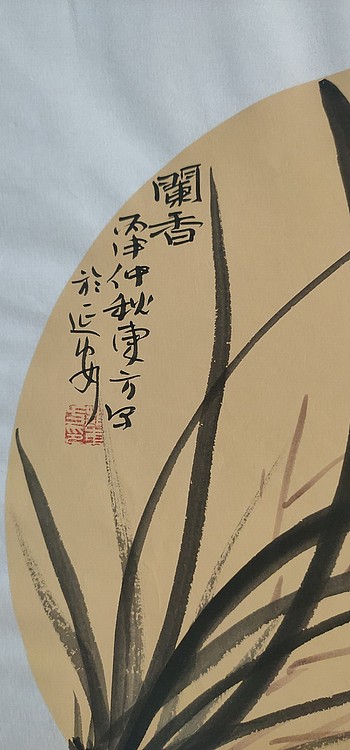 蘭香
丙申仲秋東方写
於延安